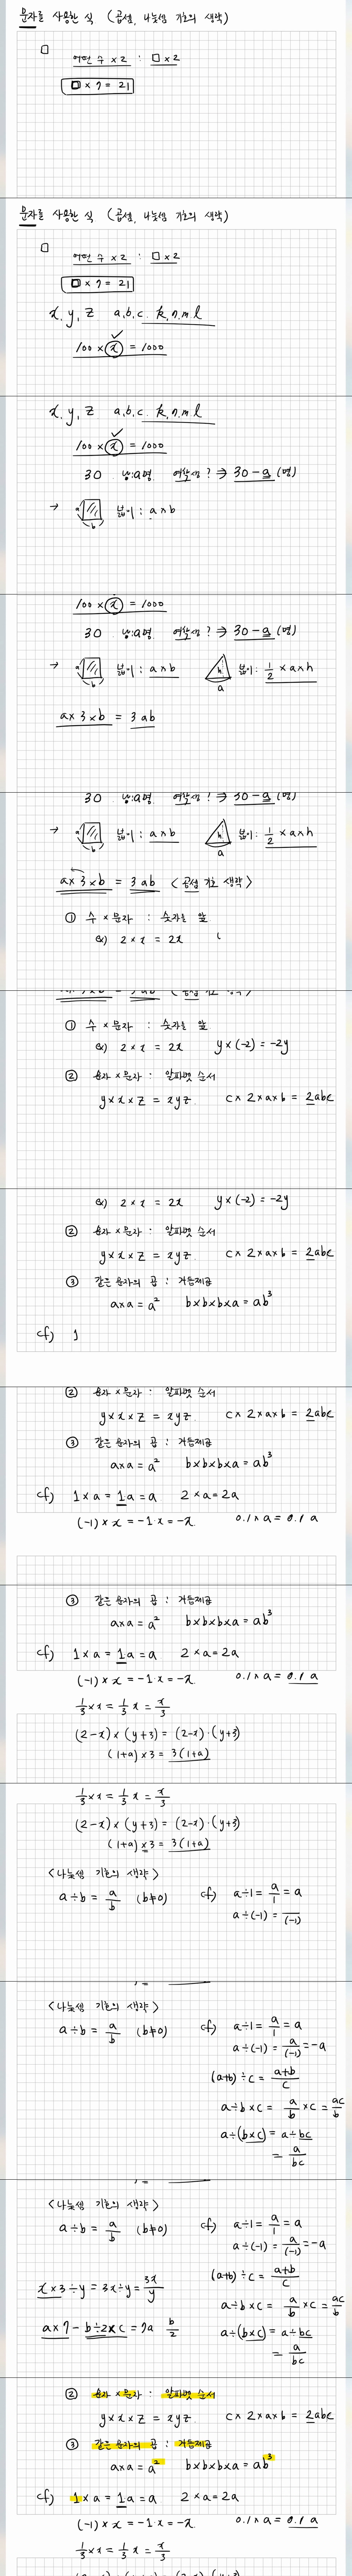 문자를 사용한 식 (곱셈, 나눗셈 기호의 생략)
□
어떤 수 × 2 : □ × 2
□ × 7 = 21
문자를 사용한 식 (곱셈, 나눗셈 기호의 생략)
□
어떤 수 × 2 : □ × 2
□ × 7 = 21
x, y, z a, b, c. k, n, m, l
100 × x = 1000
x, y, z a, b, c. k, n, m, l
100 × x = 1000
30 남:a명. 여학생? ⇒ 30 - a (명)
→ a b 넓이 : a×b
100 × x = 1000
30 남:a명. 여학생? ⇒ 30 - a (명)
→ a b 넓이 : a×b h a 넓이 : 1/2 × a × h
a × 3 × b = 3ab
30 남:a명. 여학생? ⇒ 30 - a (명)
→ a b 넓이 : a×b h a 넓이 : 1/2 × a × h
a × 3 × b = 3ab < 곱셈 기호 생략 >
① 수 × 문자 : 숫자를 앞
ex) 2 × x = 2x (
a × 3 × b = 3ab < 곱셈 기호 생략 >
① 수 × 문자 : 숫자를 앞
ex) 2 × x = 2x y × (-2) = -2y
② 문자 × 문자 : 알파벳 순서
y × x × z = xyz. c × 2 × a × b = 2abc
ex) 2 × x = 2x y × (-2) = -2y
② 문자 × 문자 : 알파벳 순서
y × x × z = xyz. c × 2 × a × b = 2abc
③ 같은 문자의 곱 : 거듭제곱
a×a = a² b×b×b×a = ab³
cf) 1
② 문자 × 문자 : 알파벳 순서
y × x × z = xyz. c × 2 × a × b = 2abc
③ 같은 문자의 곱 : 거듭제곱
a×a = a² b×b×b×a = ab³
cf) 1 × a = 1a = a 2 × a = 2a
(-1) × x = -1·x = -x. 0.1 × a = 0.1 a
③ 같은 문자의 곱 : 거듭제곱
a×a = a² b×b×b×a = ab³
cf) 1 × a = 1a = a 2 × a = 2a
(-1) × x = -1·x = -x. 0.1 × a = 0.1 a
1/3 × x = 1/3 x = x/3
(2-x) × (y+3) = (2-x)·(y+3)
(1+a) × 3 = 3(1+a)
1/3 × x = 1/3 x = x/3
(2-x) × (y+3) = (2-x)·(y+3)
(1+a) × 3 = 3(1+a)
< 나눗셈 기호의 생략 >
a ÷ b = a/b (b≠0) cf) a÷1 = a/1 = a
a ÷ (-1) = /(-1)
< 나눗셈 기호의 생략 >
a ÷ b = a/b (b≠0) cf) a÷1 = a/1 = a
a ÷ (-1) = a/(-1) = -a
(a+b) ÷ c = a+b/c
a÷b×c = a/b × c = ac/b
a÷(b×c) = a÷bc
= a/bc
< 나눗셈 기호의 생략 >
a ÷ b = a/b (b≠0) cf) a÷1 = a/1 = a
a ÷ (-1) = a/(-1) = -a
(a+b) ÷ c = a+b/c
x × 3 ÷ y = 3x ÷ y = 3x/y
a÷b×c = a/b × c = ac/b
a × 7 - b÷2×c = 7a b/2
a÷(b×c) = a÷bc
= a/bc
② 문자 × 문자 : 알파벳 순서
y × x × z = xyz. c × 2 × a × b = 2abc
③ 같은 문자의 곱 : 거듭제곱
a×a = a² b×b×b×a = ab³
cf) 1 × a = 1a = a 2 × a = 2a
(-1) × x = -1·x = -x. 0.1 × a = 0.1 a
1/3 × x = 1/3 x = x/3